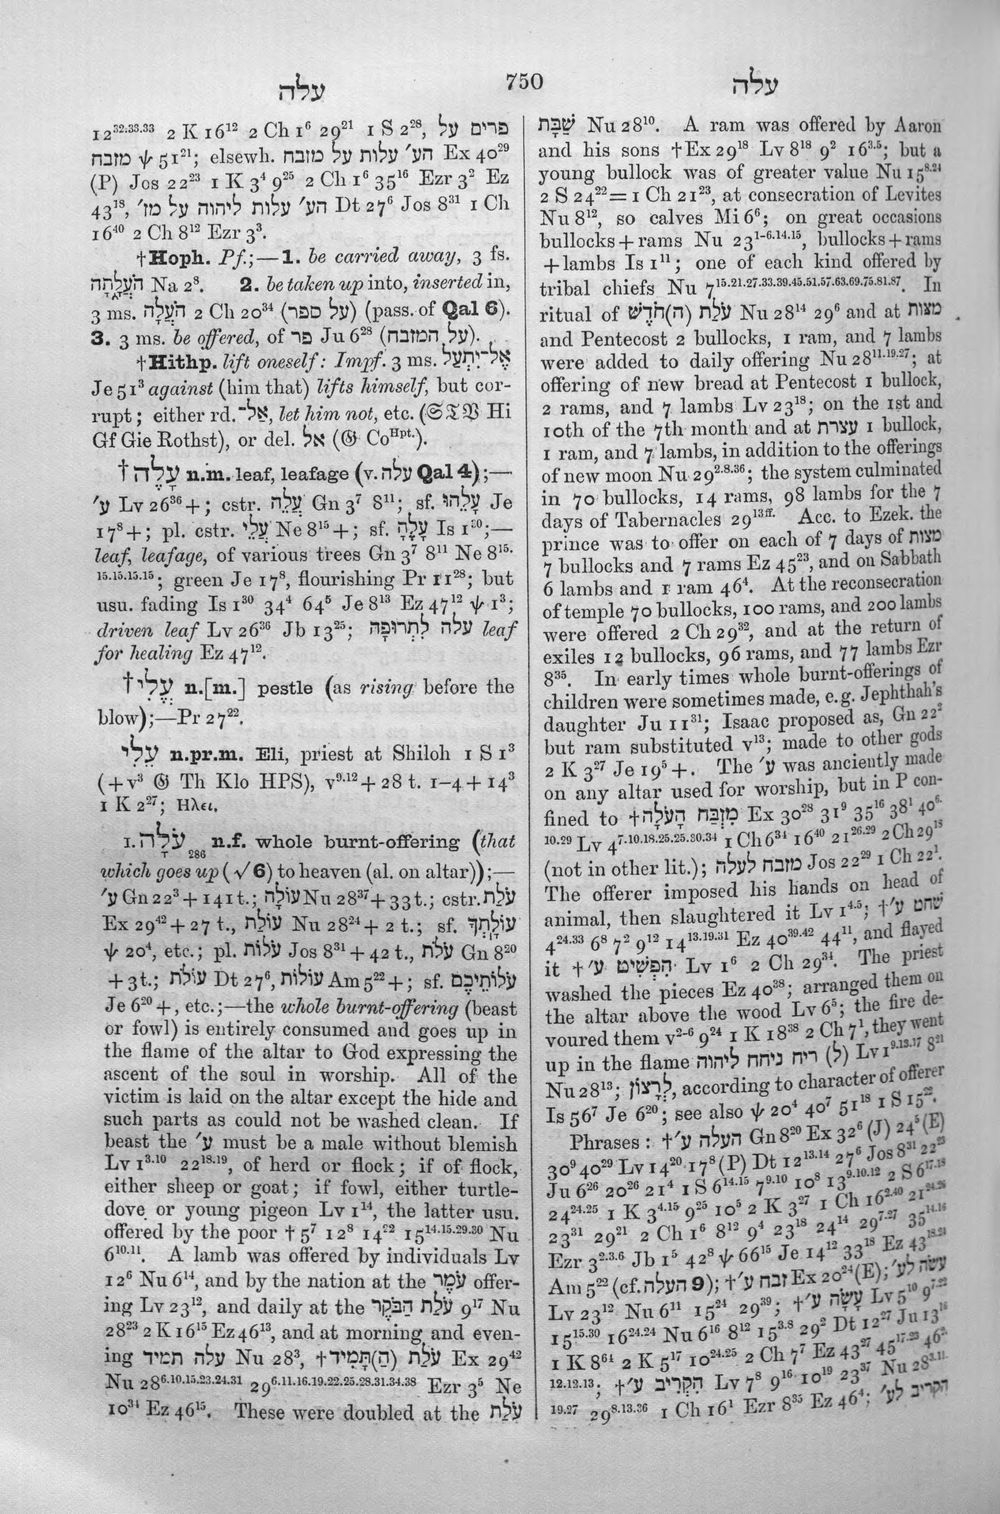 עלה 750 עלה
12³²·³³·³³ 2 K 16¹² 2 Ch 1⁶ 29²¹ 1 S 2²⁸, פרים על
מזבח ψ 51²¹; elsewh. הע׳ עלות על מזבח Ex 40²⁹
(P) Jos 22²³ 1 K 3⁴ 9²⁵ 2 Ch 1⁶ 35¹⁶ Ezr 3² Ez
43¹⁸, הע׳ עלות ליהוה על מז׳ Dt 27⁶ Jos 8³¹ 1 Ch
16⁴⁰ 2 Ch 8¹² Ezr 3³.
†Hoph. Pf.;—1. be carried away, 3 fs.
הֹעֲלָתָה Na 2⁸. 2. be taken up into, inserted in,
3 ms. הֹעֲלָה 2 Ch 20³⁴ (על ספר) (pass. of Qal 6).
3. 3 ms. be offered, of פר Ju 6²⁸ (על המזבח).
†Hithp. lift oneself: Impf. 3 ms. אֶל־יִתְעַל
Je 51³ against (him that) lifts himself, but cor-
rupt; either rd. אַל־, let him not, etc. (𝔖 𝔗 𝔙 Hi
Gf Gie Rothst), or del. אל (𝔊 Co^Hpt.).
†עָלֶה n.m. leaf, leafage (v. עלה Qal 4);—
ע׳ Lv 26³⁶+; cstr. עֲלֵה Gn 3⁷ 8¹¹; sf. עָלֵהוּ Je
17⁸+; pl. cstr. עֲלֵי Ne 8¹⁵+; sf. עָלֶהָ Is 1³⁰;—
leaf, leafage, of various trees Gn 3⁷ 8¹¹ Ne 8¹⁵·
¹⁵·¹⁵·¹⁵·¹⁵; green Je 17⁸, flourishing Pr 11²⁸; but
usu. fading Is 1³⁰ 34⁴ 64⁵ Je 8¹³ Ez 47¹² ψ 1³;
driven leaf Lv 26³⁶ Jb 13²⁵; עלה לִתְרוּפָה leaf
for healing Ez 47¹².
†עֱלִי n.[m.] pestle (as rising before the
blow);—Pr 27²².
עֵלִי n.pr.m. Eli, priest at Shiloh 1 S 1³
(+v³ 𝔊 Th Klo HPS), v⁹·¹²+28 t. 1–4+14³
1 K 2²⁷; Ηλει.
I. עֹלָה₂₈₆ n.f. whole burnt-offering (that
which goes up (√6) to heaven (al. on altar));—
ע׳ Gn 22³+141 t.; עוֹלָה Nu 28³⁷+33 t.; cstr. עֹלַת
Ex 29⁴²+27 t., עוֹלַת Nu 28²⁴+2 t.; sf. עוֹלָתְךָ
ψ 20⁴, etc.; pl. עֹלוֹת Jos 8³¹+42 t., עֹלֹת Gn 8²⁰
+3 t.; עוֹלֹת Dt 27⁶, עוֹלוֹת Am 5²²+; sf. עֹלוֹתֵיכֶם
Je 6²⁰+, etc.;—the whole burnt-offering (beast
or fowl) is entirely consumed and goes up in
the flame of the altar to God expressing the
ascent of the soul in worship. All of the
victim is laid on the altar except the hide and
such parts as could not be washed clean. If
beast the ע׳ must be a male without blemish
Lv 1³·¹⁰ 22¹⁸·¹⁹, of herd or flock; if of flock,
either sheep or goat; if fowl, either turtle-
dove or young pigeon Lv 1¹⁴, the latter usu.
offered by the poor † 5⁷ 12⁸ 14²² 15¹⁴·¹⁵·²⁹·³⁰ Nu
6¹⁰·¹¹. A lamb was offered by individuals Lv
12⁶ Nu 6¹⁴, and by the nation at the עֹמֶר offer-
ing Lv 23¹², and daily at the עֹלַת הַבֹּקֶר 9¹⁷ Nu
28²³ 2 K 16¹⁵ Ez 46¹³, and at morning and even-
ing עלה תמיד Nu 28³, †עֹלַת (הַ)תָּמִיד Ex 29⁴²
Nu 28⁶·¹⁰·¹⁵·²³·²⁴·³¹ 29⁶·¹¹·¹⁶·¹⁹·²²·²⁵·²⁸·³¹·³⁴·³⁸ Ezr 3⁵ Ne
10³⁴ Ez 46¹⁵. These were doubled at the עֹלַת
שַׁבָּת Nu 28¹⁰. A ram was offered by Aaron
and his sons †Ex 29¹⁸ Lv 8¹⁸ 9² 16³·⁵; but a
young bullock was of greater value Nu 15⁸·²⁴
2 S 24²²=1 Ch 21²³, at consecration of Levites
Nu 8¹², so calves Mi 6⁶; on great occasions
bullocks+rams Nu 23¹⁻⁶·¹⁴·¹⁵, bullocks+rams
+lambs Is 1¹¹; one of each kind offered by
tribal chiefs Nu 7¹⁵·²¹·²⁷·³³·³⁹·⁴⁵·⁵¹·⁵⁷·⁶³·⁶⁹·⁷⁵·⁸¹·⁸⁷. In
ritual of עֹלַת (הַ)חֹדֶשׁ Nu 28¹⁴ 29⁶ and at מצות
and Pentecost 2 bullocks, 1 ram, and 7 lambs
were added to daily offering Nu 28¹¹·¹⁹·²⁷; at
offering of new bread at Pentecost 1 bullock,
2 rams, and 7 lambs Lv 23¹⁸; on the 1st and
10th of the 7th month and at עצרת 1 bullock,
1 ram, and 7 lambs, in addition to the offerings
of new moon Nu 29²·⁸·³⁶; the system culminated
in 70 bullocks, 14 rams, 98 lambs for the 7
days of Tabernacles 29¹³ᶠᶠ· Acc. to Ezek. the
prince was to offer on each of 7 days of מצות
7 bullocks and 7 rams Ez 45²³, and on Sabbath
6 lambs and 1 ram 46⁴. At the reconsecration
of temple 70 bullocks, 100 rams, and 200 lambs
were offered 2 Ch 29³², and at the return of
exiles 12 bullocks, 96 rams, and 77 lambs Ezr
8³⁵. In early times whole burnt-offerings of
children were sometimes made, e.g. Jephthah's
daughter Ju 11³¹; Isaac proposed as, Gn 22²
but ram substituted v¹³; made to other gods
2 K 3²⁷ Je 19⁵+. The ע׳ was anciently made
on any altar used for worship, but in P con-
fined to †מִזְבַּח הָעֹלָה Ex 30²⁸ 31⁹ 35¹⁶ 38¹ 40⁶·
¹⁰·²⁹ Lv 4⁷·¹⁰·¹⁸·²⁵·²⁵·³⁰·³⁴ 1 Ch 6³⁴ 16⁴⁰ 21²⁶·²⁹ 2 Ch 29¹⁸
(not in other lit.); מזבח לעלה Jos 22²⁹ 1 Ch 22¹.
The offerer imposed his hands on head of
animal, then slaughtered it Lv 1⁴·⁵; †שחט ע׳
4²⁴·³³ 6⁸ 7² 9¹² 14¹³·¹⁹·³¹ Ez 40³⁹·⁴² 44¹¹, and flayed
it †הִפְשִׁיט ע׳ Lv 1⁶ 2 Ch 29³⁴. The priest
washed the pieces Ez 40³⁸; arranged them on
the altar above the wood Lv 6⁵; the fire de-
voured them v²⁻⁶ 9²⁴ 1 K 18³⁸ 2 Ch 7¹, they went
up in the flame ריח ניחח ליהוה (ל) Lv 1⁹·¹³·¹⁷ 8²¹
Nu 28¹³; לְרָצוֹן, according to character of offerer
Is 56⁷ Je 6²⁰; see also ψ 20⁴ 40⁷ 51¹⁸ 1 S 15²².
Phrases: †העלה ע׳ Gn 8²⁰ Ex 32⁶ (J) 24⁵ (E)
30⁹ 40²⁹ Lv 14²⁰ 17⁸ (P) Dt 12¹³·¹⁴ 27⁶ Jos 8³¹ 22²³
Ju 6²⁶ 20²⁶ 21⁴ 1 S 6¹⁴·¹⁵ 7⁹·¹⁰ 10⁸ 13⁹·¹⁰·¹² 2 S 6¹⁷·¹⁸
24²⁴·²⁵ 1 K 3⁴·¹⁵ 9²⁵ 10⁵ 2 K 3²⁷ 1 Ch 16²·⁴⁰ 21²⁴·²⁶
23³¹ 29²¹ 2 Ch 1⁶ 8¹² 9⁴ 23¹⁸ 24¹⁴ 29⁷·²⁷ 35¹⁴·¹⁶
Ezr 3²·³·⁶ Jb 1⁵ 42⁸ ψ 66¹⁵ Je 14¹² 33¹⁸ Ez 43¹⁸·²⁴
Am 5²² (cf. העלה 9); †זבח ע׳ Ex 20²⁴ (E); עשה לע׳
Lv 23¹² Nu 6¹¹ 15²⁴ 29³⁹; †עָשָׂה ע׳ Lv 5¹⁰ 9⁷·²²
15¹⁵·³⁰ 16²⁴·²⁴ Nu 6¹⁶ 8¹² 15³·⁸ 29² Dt 12²⁷ Ju 13¹⁶
1 K 8⁶⁴ 2 K 5¹⁷ 10²⁴·²⁵ 2 Ch 7⁷ Ez 43²⁷ 45¹⁷·²³ 46²·
¹²·¹²·¹³; †הִקְרִיב ע׳ Lv 7⁸ 9¹⁶ 10¹⁹ 23³⁷ Nu 28³·¹¹·
¹⁹·²⁷ 29⁸·¹³·³⁶ 1 Ch 16¹ Ezr 8³⁵ Ez 46⁴; הקריב לע׳